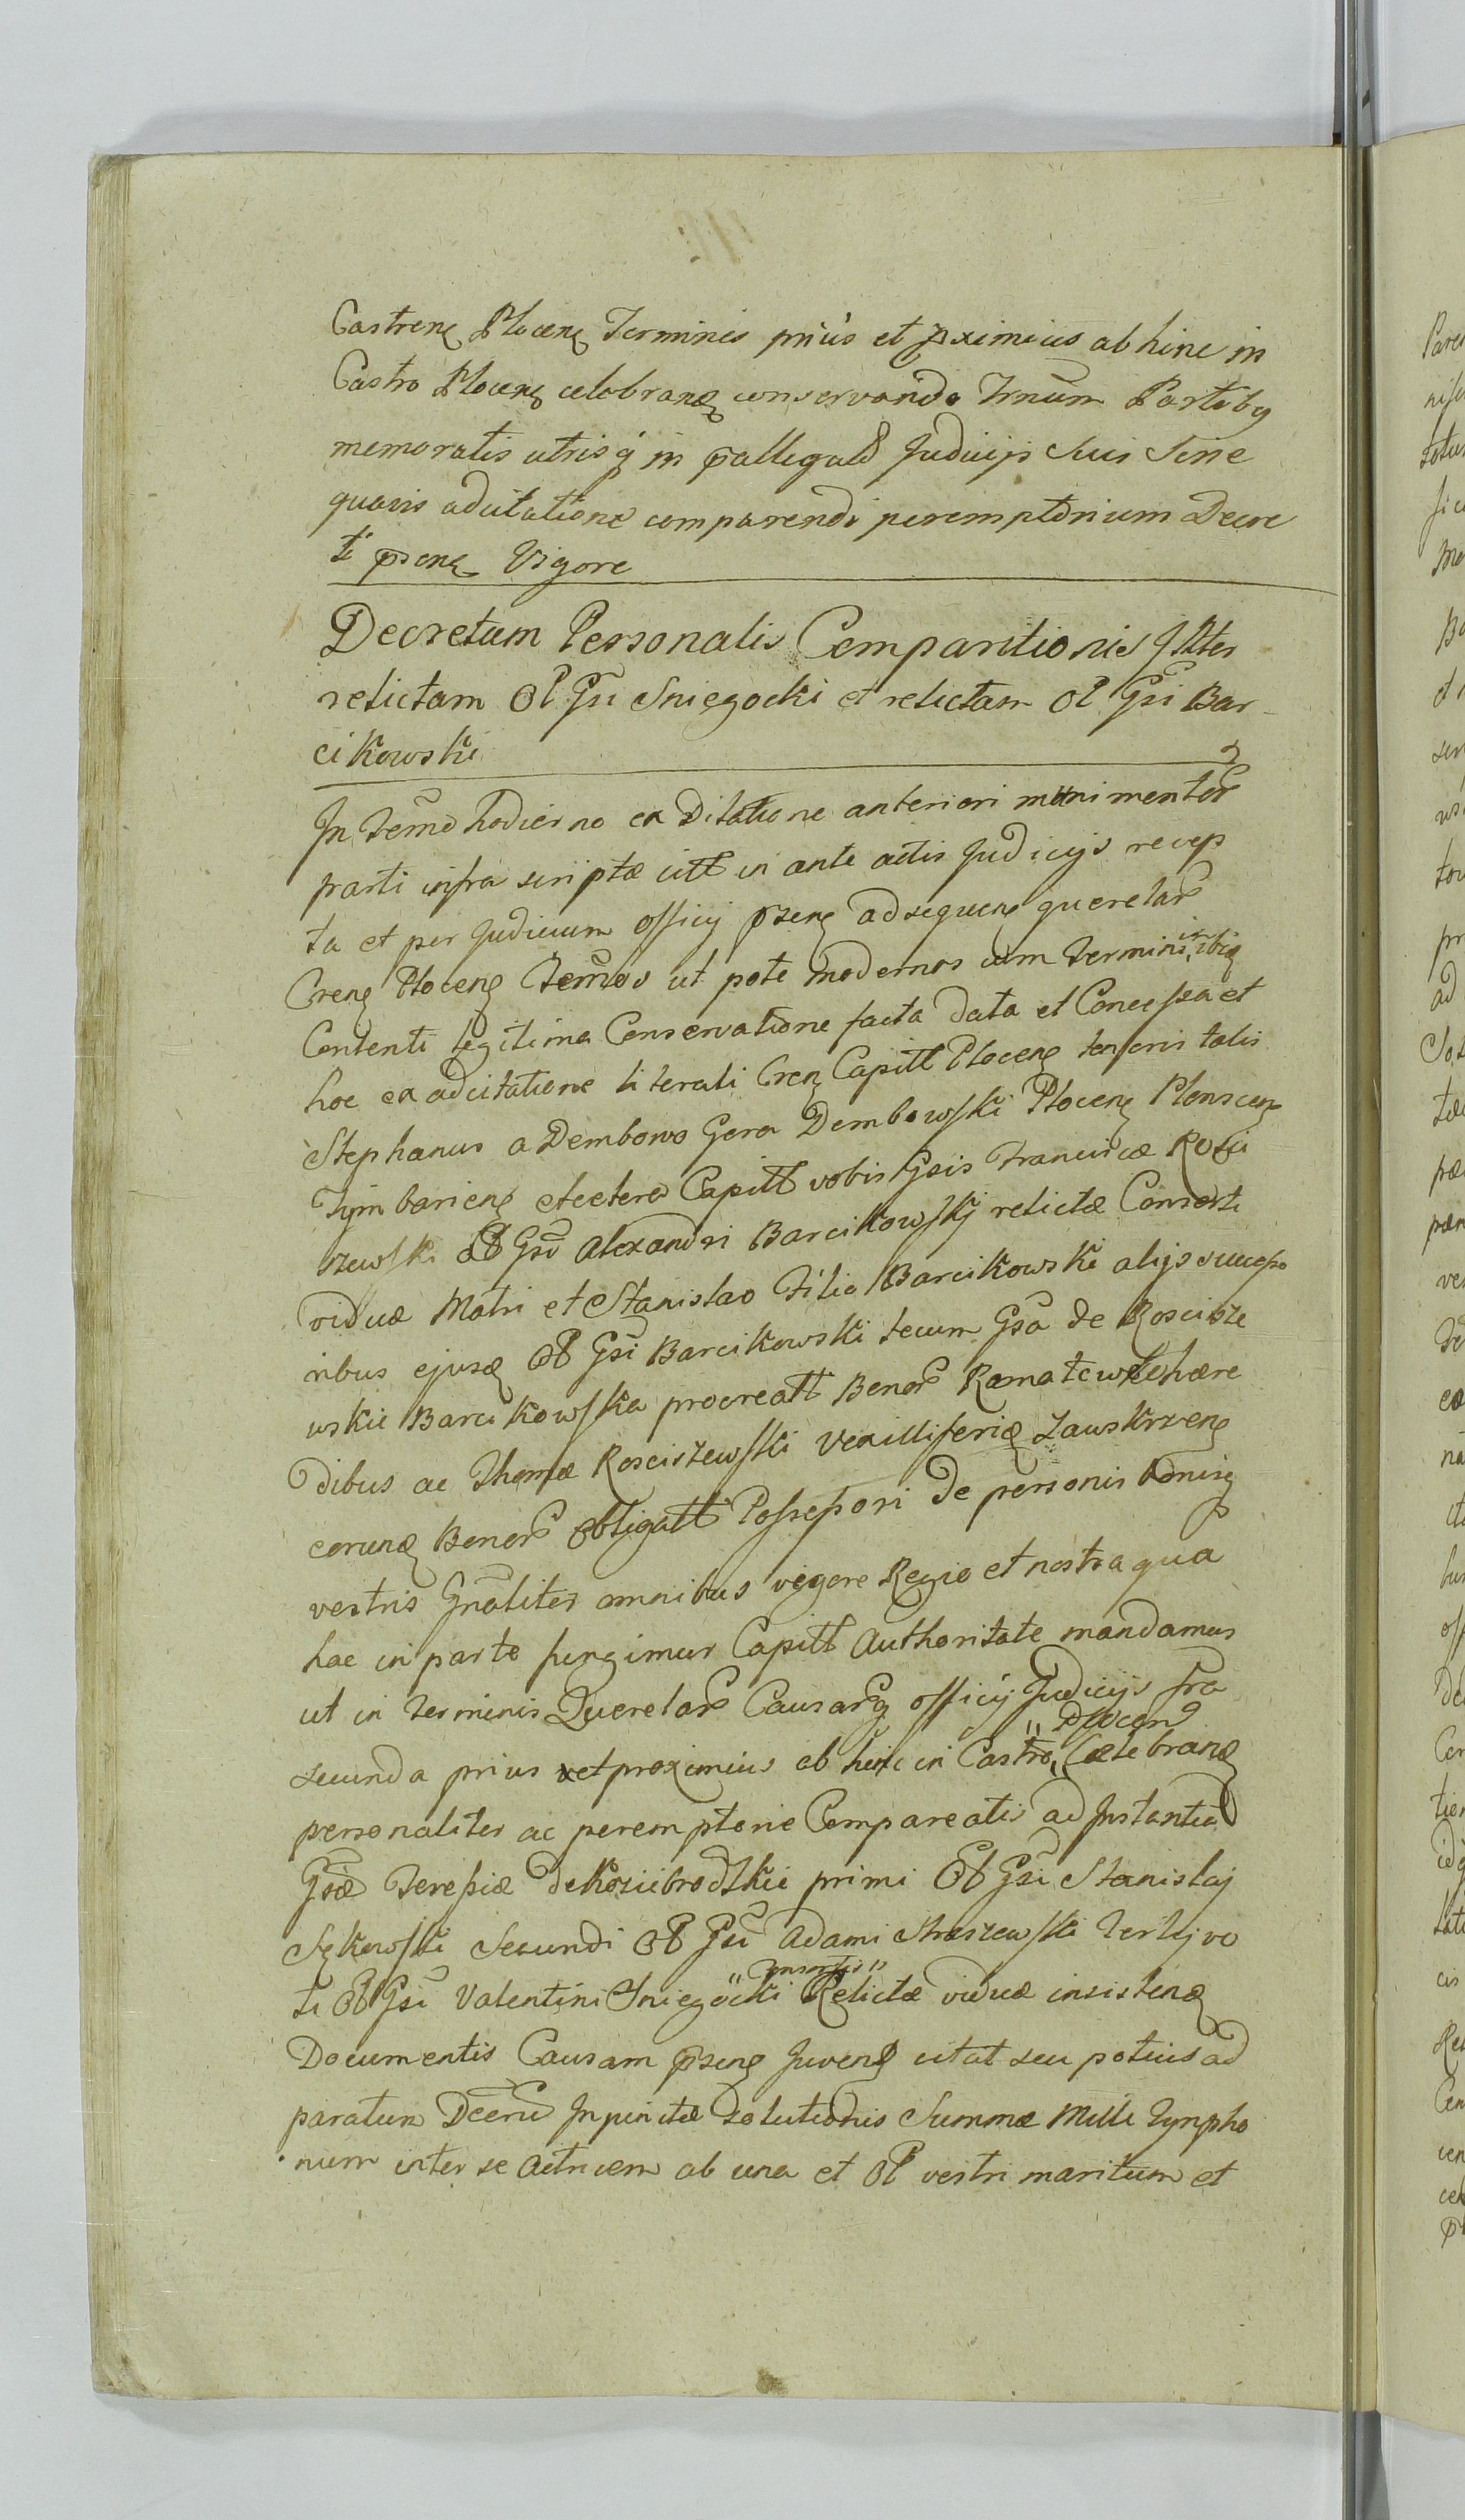 Castrenę Płocenę Terminis prius et pximius ab hinc in
Castro Płocenę celebranę conservando Trnum Partibq
memoratis utrisq in pallegatd Judicijs suis sine
quavis adcitatione comparendi peremptorium Decre
ti psenę Vigore
Decretum Personalis Comparitionis Inter
relictam Ol Gsi Sniegocki et relictam Ol Gsi Bar-
cikowski
In Termo hodierno ex Dilatione anteriori munimentor
parti infra scriptæ citt in ante actis Judicijs recep
ta et per Judicium officij pzenę adsequenę querelar
Crenę Płocenę Termos ut pote modernos cum Terminis
Contenti legitima Conservatione facta data et Concessa et
hoc ex adcitatione literali Crenę Capitt Płocenę tenoris talis
Stephanus a Dembowo Gora Dembowski Płocenę Plonscenę
Tymbarienę etcetera Capitt vobis Gsis Franciscæ Rości
szewski Ol Gsi Alexandri Barcikowskj relictæ Consorti
viduæ Matri et Stanislao Filio Barcikowski alijs successo
ribus ejusq Ol Gsi Barcikowski tecum Gsa de Roscisze
wskie Barcikowska procreatt Benor Ramatewkehære
dibus ac Thomæ Rosciszewski Vexilliferię Zawskrzenę
eorunq Benor obligatt Possessori de personis bonisq
vestris Gnaliter omnibus vigore Regio et nostra qua
hac in parte fungimur Capitt Authoritate mandamus
ut in Terminis Querelar Causarq officij Judicijs fra
secunda prius et proximius ab hinc in Castro " Płocenę Cælebranę
personaliter ac peremptorie Compareatis ad Instantia
Gsæ Teresiæ de Koziibrodzkie primi Ol Gsi Stanislaj
Sękowski Secundi Ol Gsi Adami Straszewski Tertij vo
ti Ol Gsi Valentini Sniegocki Relictæ viduæ insistenę
Documentis Causam pzenę Juvend citat seu potius ad
paratum Dcern Inpunctæ solutionis Summæ Mille Tympho
num inter se Actricem ab una et Ol vestri maritum et